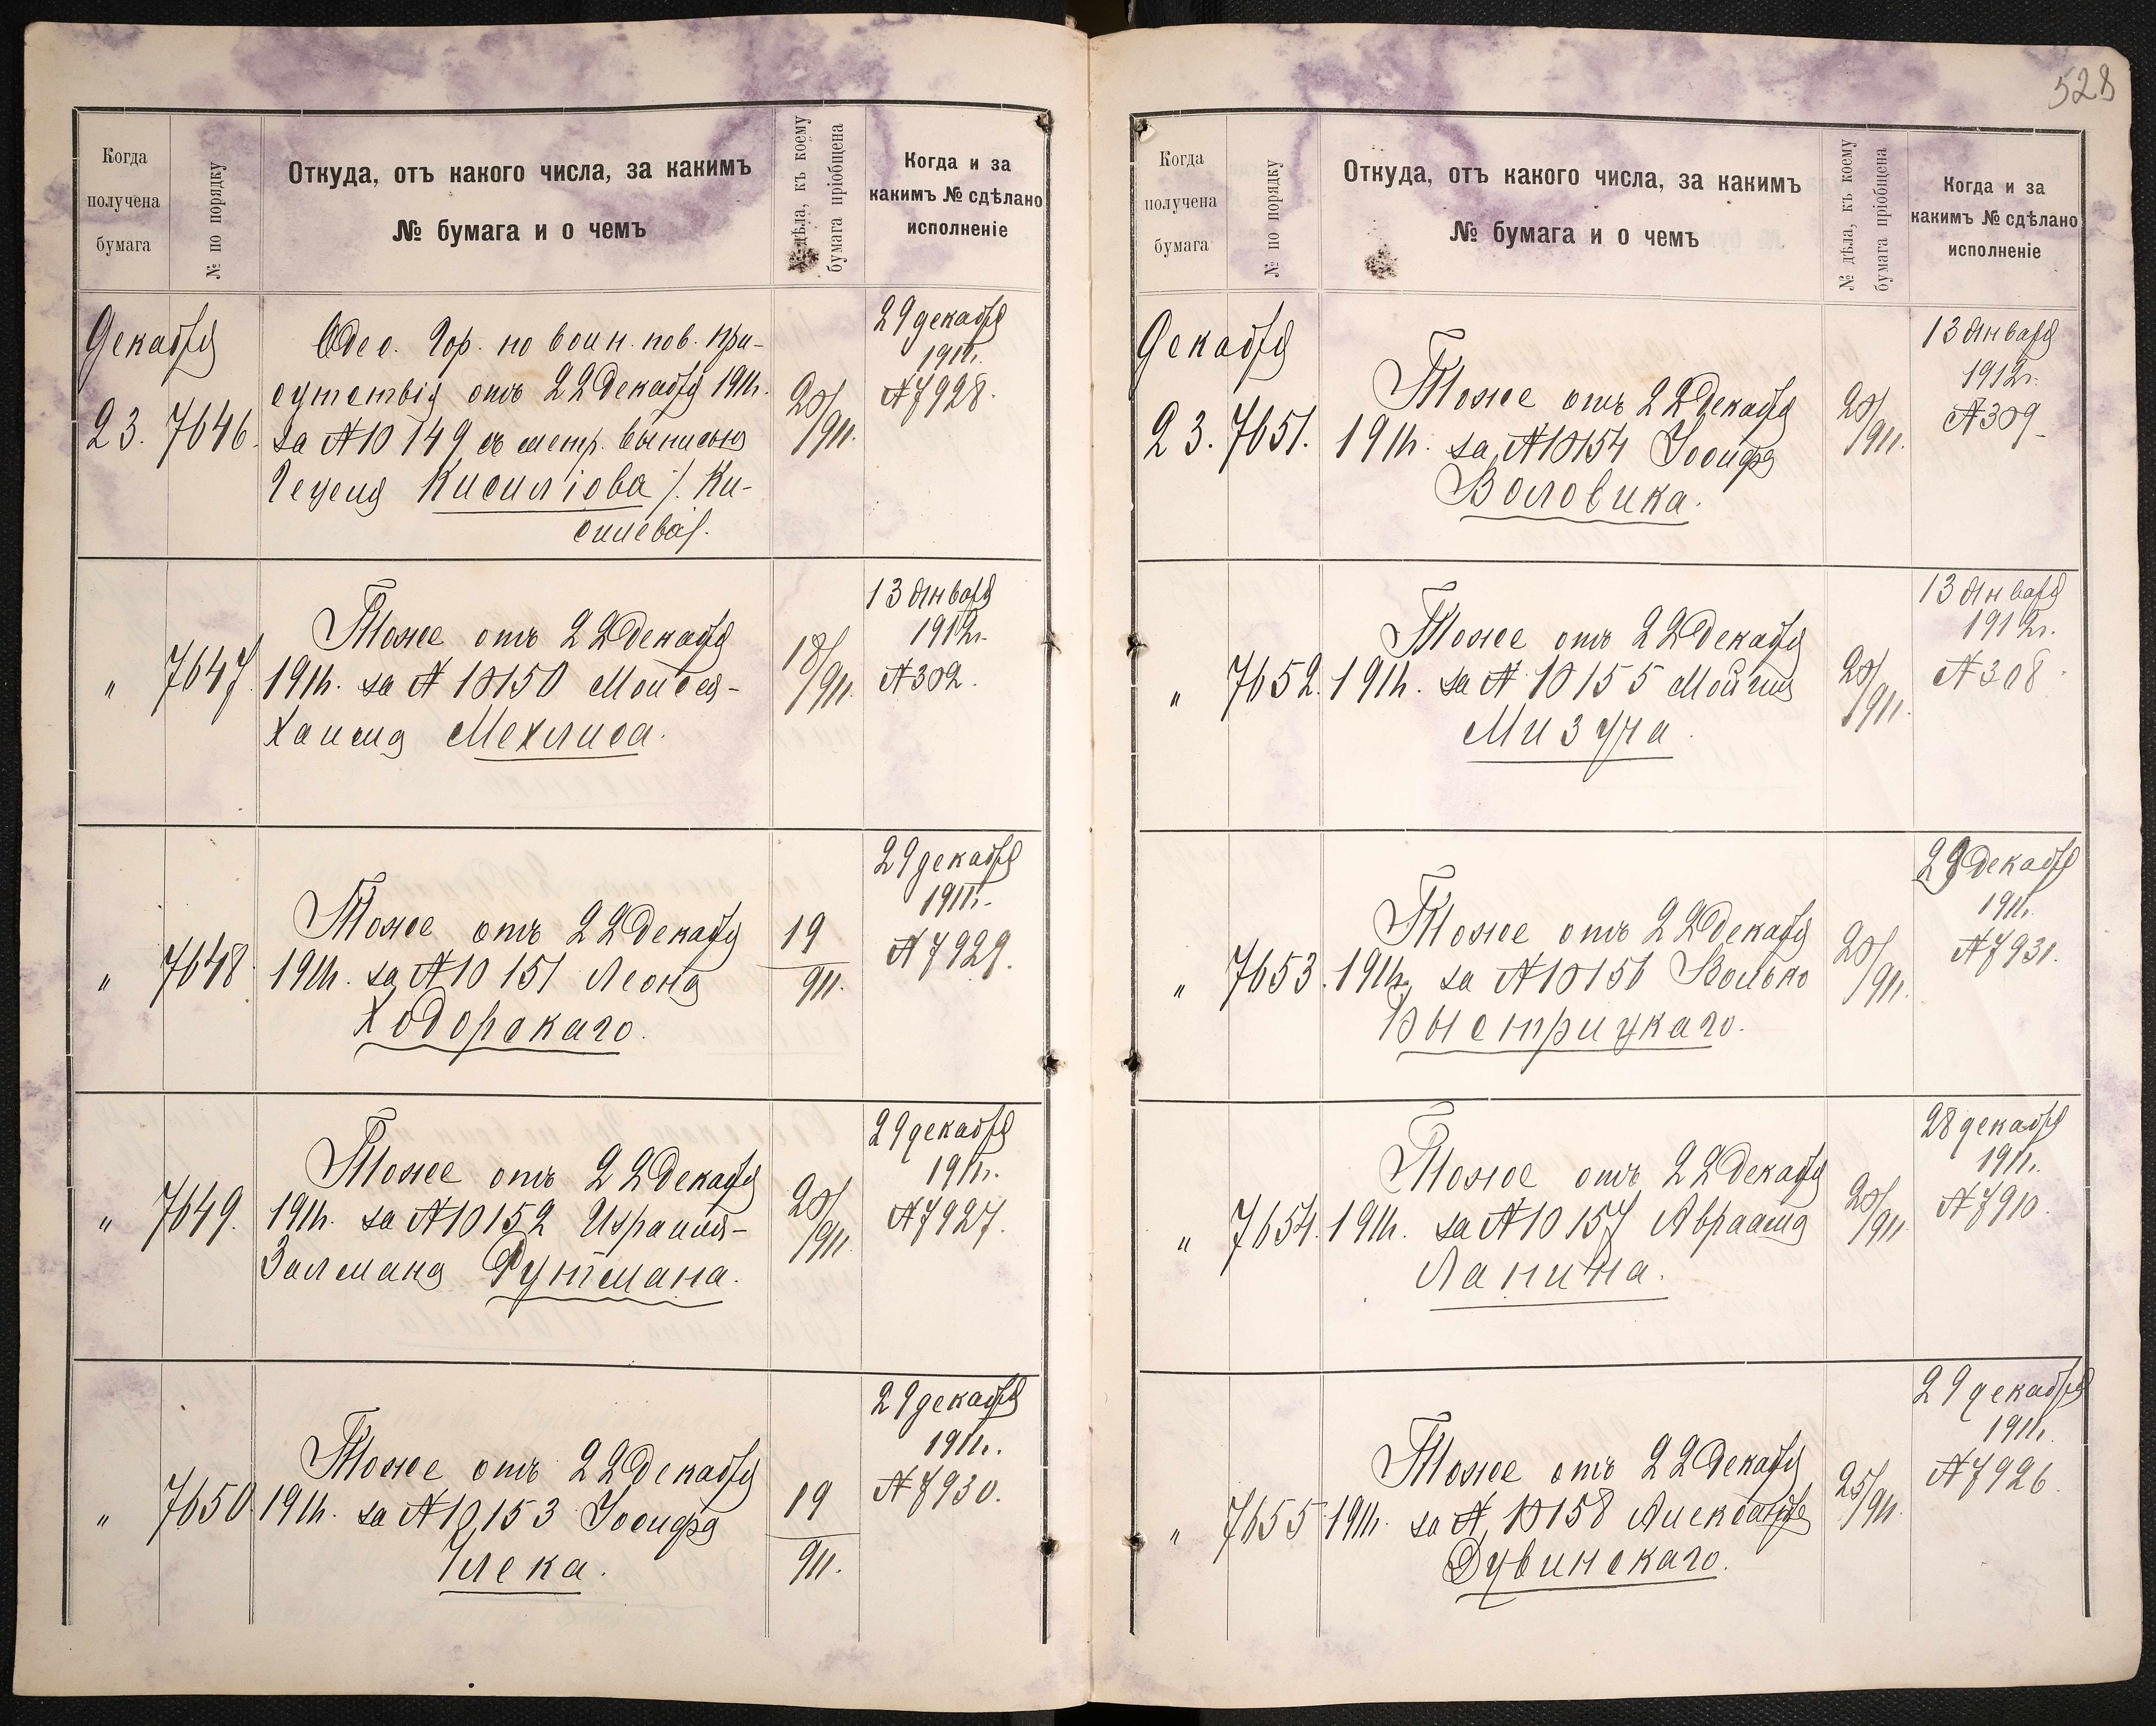 528
Когда
получена
бумага
№ по порядку
Откуда, отъ какого числа, за какимъ
№ бумага и о чемъ
№ дѣла, къ коему
бумага пріобщена
Когда и за
какимъ № сдѣлано
исполненіе
Декабря
23. 7646.
Одес. Гор. по воин. пов. при-
сутствія отъ 22 Декабря 1911г.
за № 10149 съ метр. выписью
Гецеля Кисиліова /. Ки-
силева/.
20/911.
29 декабря
1911г.
№ 7928.
" 7647.
Тоже отъ 22 Декабря
1911г. за № 10150 Мойсея-
Хаима Мехлиса.
18/911.
13 Января
1912г.
№ 302.
" 7648.
Тоже отъ 22 Декабря
1911г. за № 10151 Леона
Ходорскаго.
19
911.
29 декабря
1911г.
№ 7929.
" 7649.
Тоже отъ 22 Декабря
1911г. за № 10152 Израиля-
Залмана Рутмана.
20/911.
29 декабря
1911г.
№ 7927.
" 7650
Тоже отъ 22 Декабря
1911г. за № 10153 Іосифа
Улека.
19
911.
29 декабря
1911г.
№ 7930.
Когда
получена
бумага
№ по порядку
Откуда, отъ какого числа, за какимъ
№ бумага и о чемъ
№ дѣла, къ коему
бумага пріобщена
Когда и за
какимъ № сдѣлано
исполненіе
Декабря
23. 7651.
Тоже отъ 22 Декабря
1911г. за № 10154 Іосифа
Воловика.
20/911.
13 Января
1912г.
№ 309
" 7652.
Тоже отъ 22 Декабря
1911г. за № 10155
Мизуча.
20/911.
13 Января
1912г.
№ 308
" 7653.
Тоже отъ 22 Декабря
1911г. за № 10156 Волько
Быстрицкаго.
20/911.
29 Декабря
1911г.
№ 7931.
" 7654.
Тоже отъ 22 Декабря
1911г. за № 10157 Авраама
Лапина.
20/911
28 декабря
1911г.
№ 7910.
" 7655
Тоже отъ 22 Декабря
1911г. за № 10158 Александра
Дувинскаго.
25/911.
29 декабря
1911г.
№ 7926.